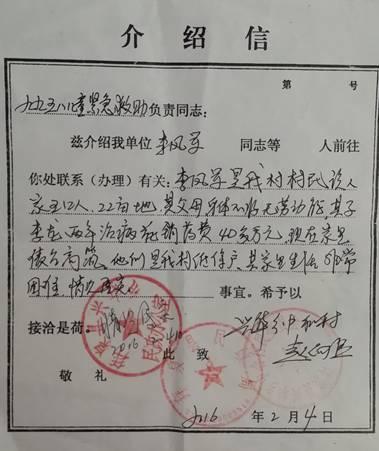 介绍信
第 号
九九五八儿童紧急救助负责同志:
兹介绍我单位 李凤军 同志等 人前往
你处联系(办理)有关:李凤军是我村村民,该人
家五口人、22亩地,其父母身体不好无劳动能 其子
李龙 两年治病花销药费40多万元,现在家里
债台高筑。他们是我村低保户 其家里生活 非常
困难,情况属实。 事宜。希予以
接洽是荷。
此 致
敬 礼
2016 年 2 月 4 日